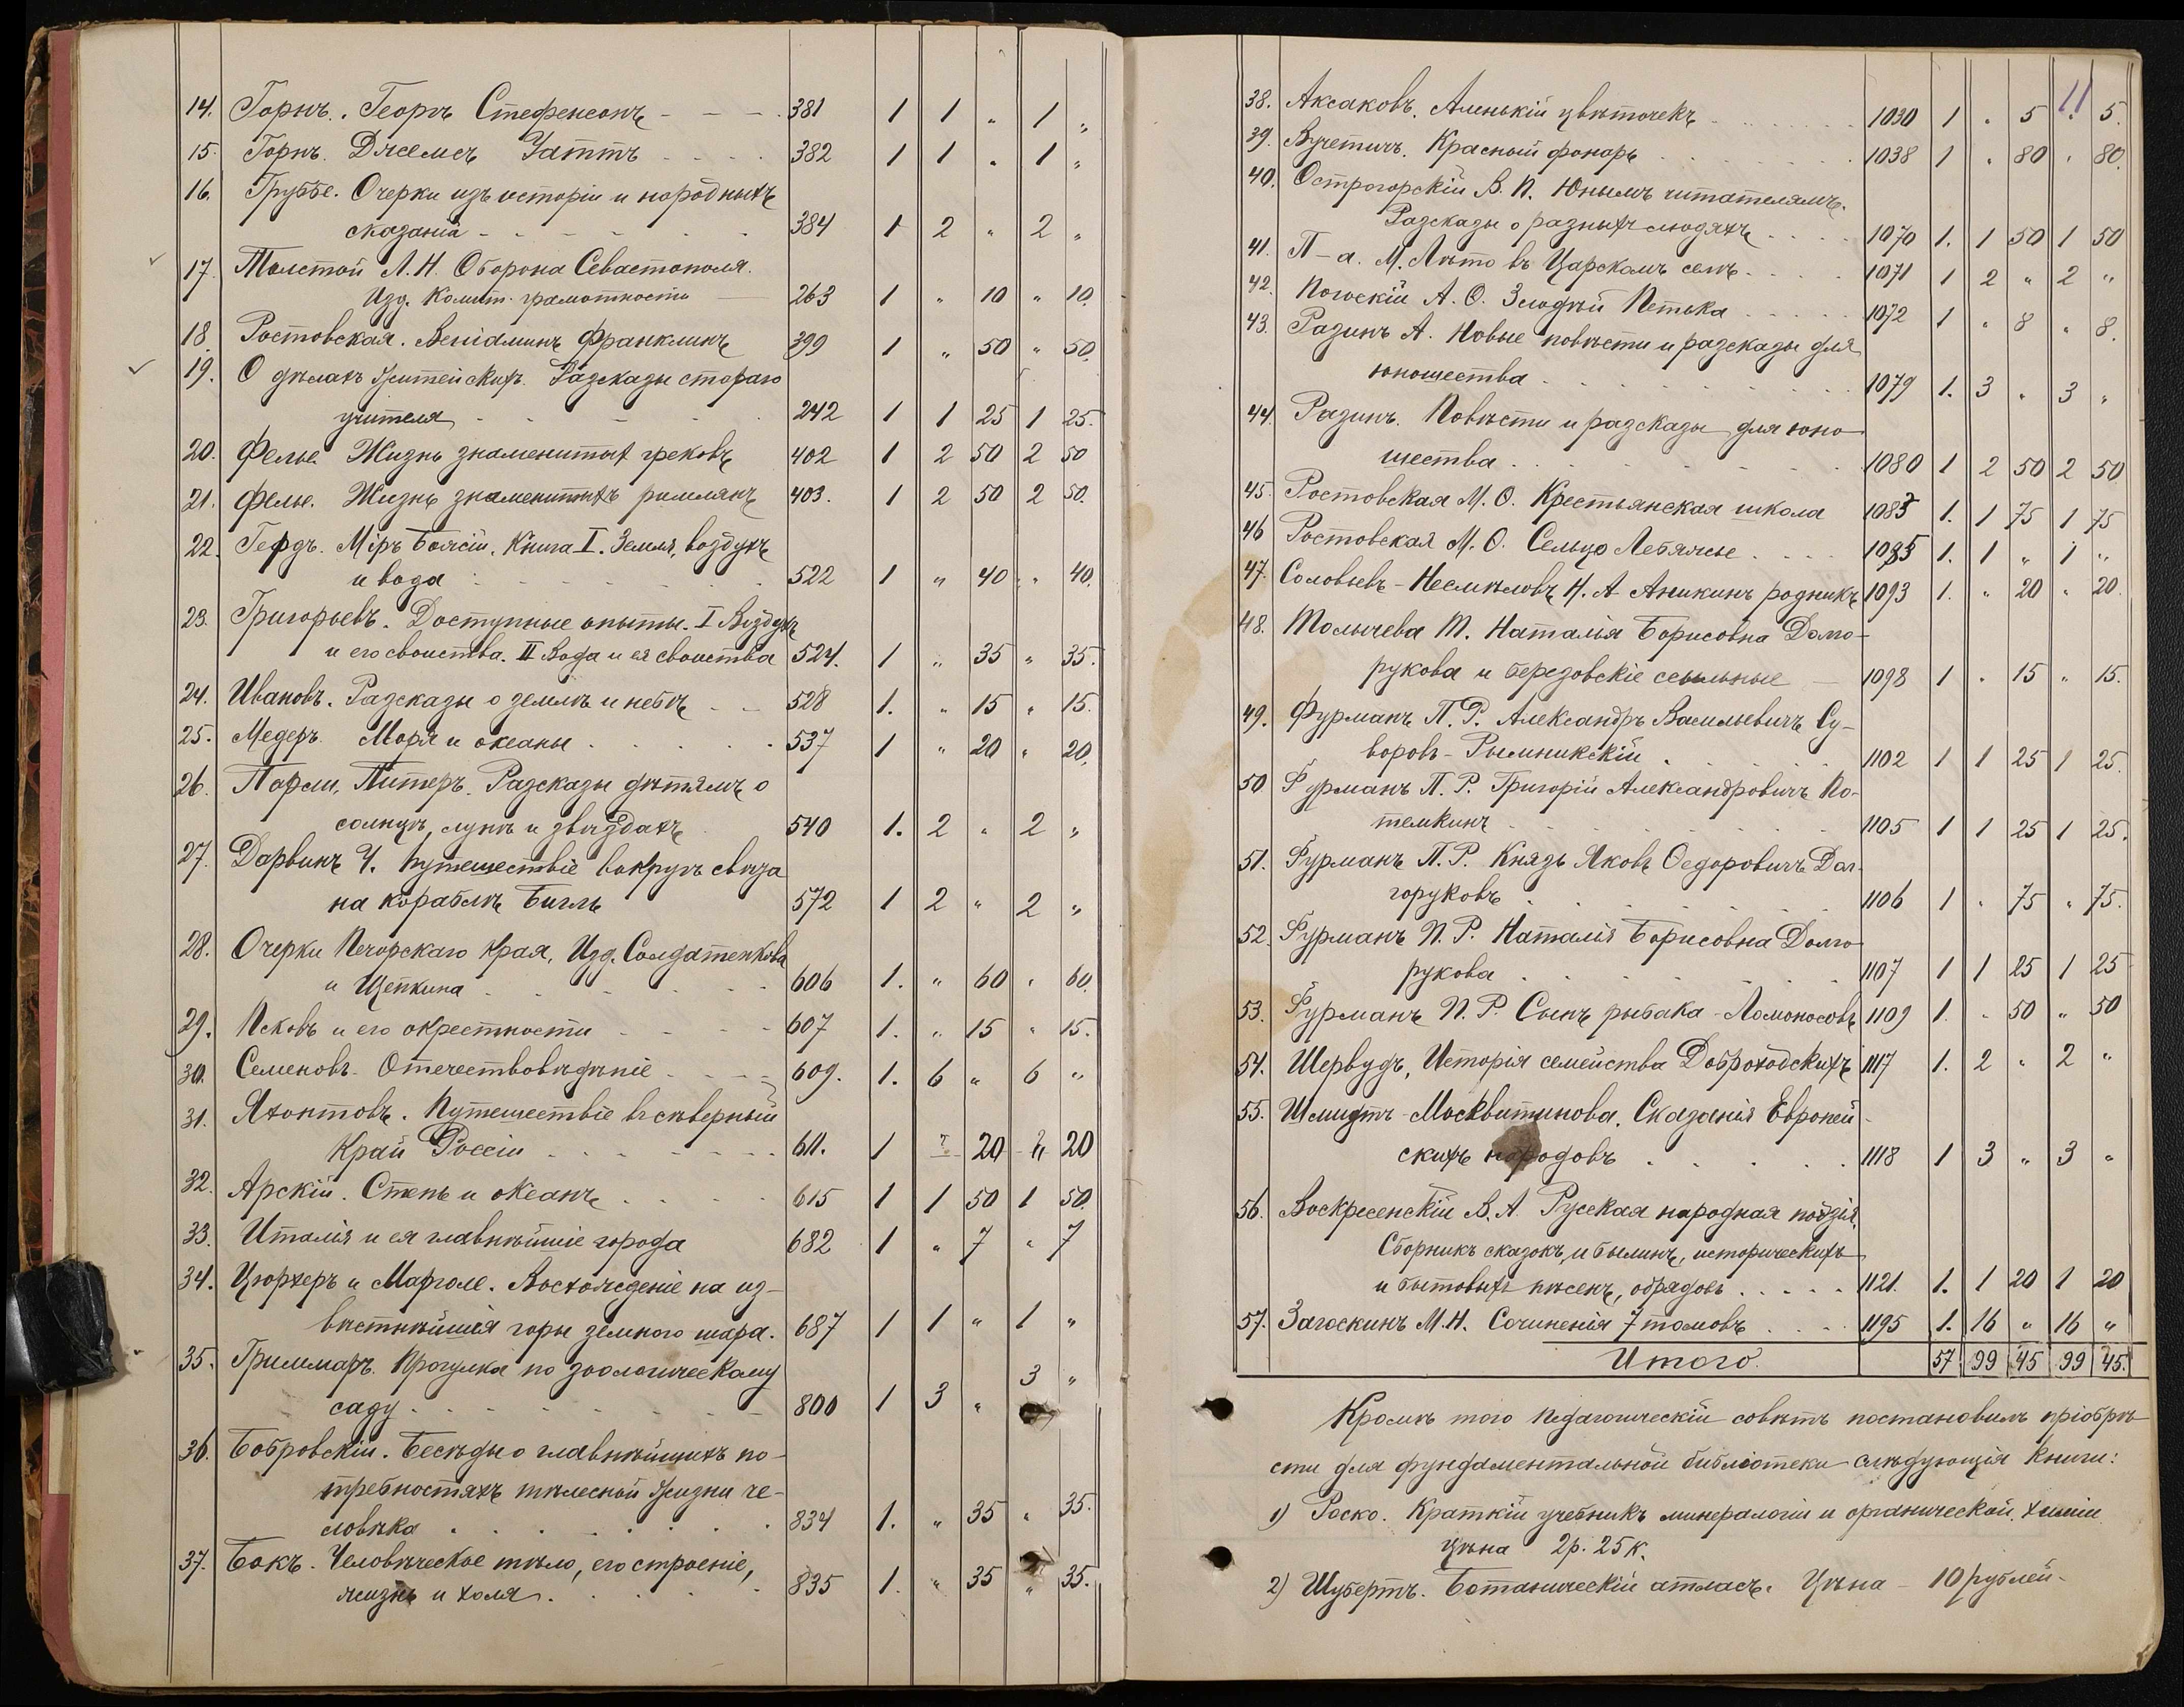 14. Горнъ. Георгъ Стефенсонъ - - - . 381 1 1 „ 1 „
15. Горнъ. Джемсъ Уаттъ . . . . 382 1 1 „ 1 „
16. Грубе. Очерки изъ исторіи и народныхъ
сказаній - - - - - - 384 1 2 „ 2 „
17. Толстой Л. Н. Оборона Севастополя.
Изд. Комит. грамотности — 263 1 „ 10 „ 10.
18. Ростовская. Веніаминъ Франклинъ 399 1 „ 50 „ 50.
19. О дѣлахъ житейскихъ. Разсказы стараго
учителя - - - - . 242 1 1 25 1 25.
20. Фелье. Жизнь знаменитых грековъ 402 1 2 50 2 50
21. Фелье. Жизнь знаменитыхъ римлянъ 403. 1 2 50 2 50.
22. Гердъ. Міръ Божій. Книга I. Земля, воздухъ
и вода - - - - - - 522 1 „ 40 „ 40.
23. Григорьевъ. Доступные опыты. I Воздухъ
и его свойства. II Вода и ея свойства 524. 1 „ 35 „ 35.
24. Ивановъ. Разсказы о землѣ и небѣ - - 528 1. „ 15 „ 15.
25. Медеръ. Моря и океаны . . . . . 537 1 „ 20 „ 20.
26. Парли, Питеръ. Разсказы дѣтямъ о
солнцѣ, лунѣ и звѣздахъ . 540 1. 2 „ 2 „
27. Дарвинъ Ч. Путешествіе вокругъ свѣта
на кораблѣ Бигль 572 1 2 „ 2 „
28. Очерки Печорскаго края, Изд. Солдатенкова
и Щепкина . . . . . . 606 1. „ 60 „ 60.
29. Псковъ и его окрестности - - - - 607 1. „ 15 „ 15.
30. Семеновъ. Отечествовѣдѣніе - - - - 609. 1. 6 „ 6 „
31. Яхонтовъ. Путешествіе въ сѣверный
край Россіи . . . . . . 611. 1 „ 20 „ 20
32. Арскій. Степь и океанъ . . . . 615 1 1 50 1 50.
33. Италія и ея главнѣйшіе города 682 1 „ 7 „ 7
34. Цюрхеръ и Марголе. Восхожденіе на из-
вѣстнѣйшія горы земного шара. 687 1 1 „ 1 „
35. Гриммаръ. Прогулка по зоологическому
саду . . . . . . . . 800 1 3 „ 3 „
36. Бобровскій. Бесѣды о главнѣйшихъ по-
требностяхъ тѣлесной жизни че-
ловѣка . . . . . . . 834 1. „ 35 „ 35.
37. Бокъ. Человѣческое тѣло, его строеніе,
жизнь и холя . . . . . 835 1. „ 35 „ 35.
11
38. Аксаковъ. Аленькій цвѣточекъ . . . . . . 1030 1 „ 5 „ 5.
39. Вучетичъ. Красный фонарь . . . . . . . 1038 1 „ 80 „ 80.
40. Острогорскій В. П. Юнымъ читателямъ.
Разсказы о разныхъ людяхъ . . . . 1070 1. 1 50 1 50
41. П-а. М. Лѣто въ Царскомъ селѣ . . . . 1071 1 2 „ 2 „
42. Погоскій А. О. Злодѣй Петька . . . . . 1072 1 „ 8 „ 8.
43. Разинъ А. Новые повѣсти и разсказы для
юношества . . . . . . . . 1079 1. 3 „ 3 „
44. Разинъ. Повѣсти и разсказы для юно-
шества . . . . . . . . 1080 1 2 50 2 50
45. Ростовская М. О. Крестьянская школа 1083 1. 1 75 1 75
46 Ростовская М. О. Сельцо Лебяжье . . . . 1085 1. 1 „ 1 „
47. Соловьевъ-Несмѣловъ Н. А Аникинъ родникъ 1093 1. „ 20 „ 20.
48. Толычева Т. Наталья Борисовна Долго-
рукова и березовскіе ссыльные — 1098 1 „ 15 „ 15.
49. Фурманъ П. Р. Александръ Васильевичъ Су-
воровъ-Рымникскій . . . . . 1102 1 1 25 1 25.
50 Фурманъ П. Р. Григорій Александровичъ По-
темкинъ . . . . . . . . 1105 1 1 25 1 25.
51. Фурманъ П. Р. Князь Яковъ Ѳедоровичъ Дол-
горуковъ . . . . . . . 1106 1 „ 75 „ 75.
52. Фурманъ П. Р. Наталія Борисовна Долго-
рукова . . . . . . . 1107 1 1 25 1 25
53. Фурманъ П. Р. Сынъ рыбака - Ломоносовъ 1109 1. „ 50 „ 50
54. Шервудъ, Исторія семейства Доброходскихъ 1117 1. 2 „ 2 „
55. Шмидтъ-Москвитинова. Сказанія Европей-
скихъ народовъ . . . . . 1118 1 3 „ 3 „
56. Воскресенскій В. А. Русская народная поэзія.
Сборникъ сказокъ, и былинъ, историческихъ
и бытовыхъ пѣсенъ, обрядовъ . . . . . 1121. 1. 1 20 1 20
57. Загоскинъ М. Н. Сочиненія 7 томовъ . . . 1195 1. 16 „ 16 „
Итого. 57 99 45 99 45.
Кромѣ того Педагогическій совѣтъ постановилъ пріобрѣ-
сти для фундаментальной библіотеки слѣдующія книги:
1) Роско. Краткій учебникъ минералогіи и органической химіи
Цѣна 2р. 25к.
2) Шубертъ. Ботаническій атласъ. Цѣна - 10 рублей.